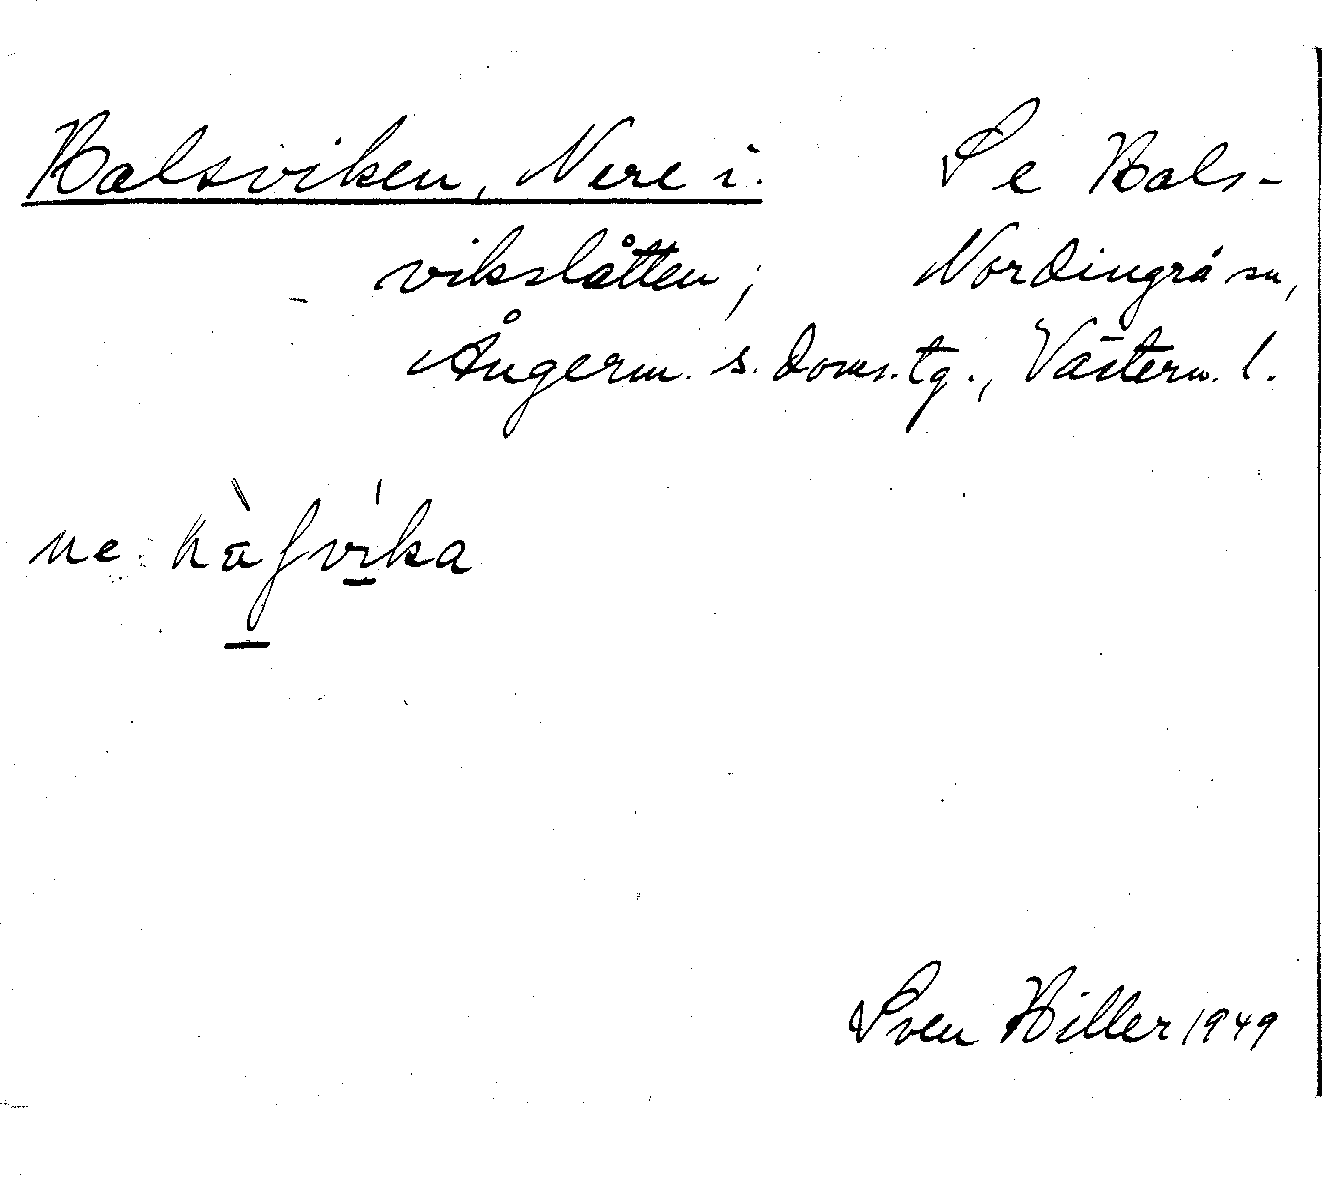 Halsviken, Nere i. Se Hals-
vikslåtten, Nordingrå sn,
Ångerm. s. doms.tg., Västern. l.
ne hàʃvíka
Sven Hiller 1949